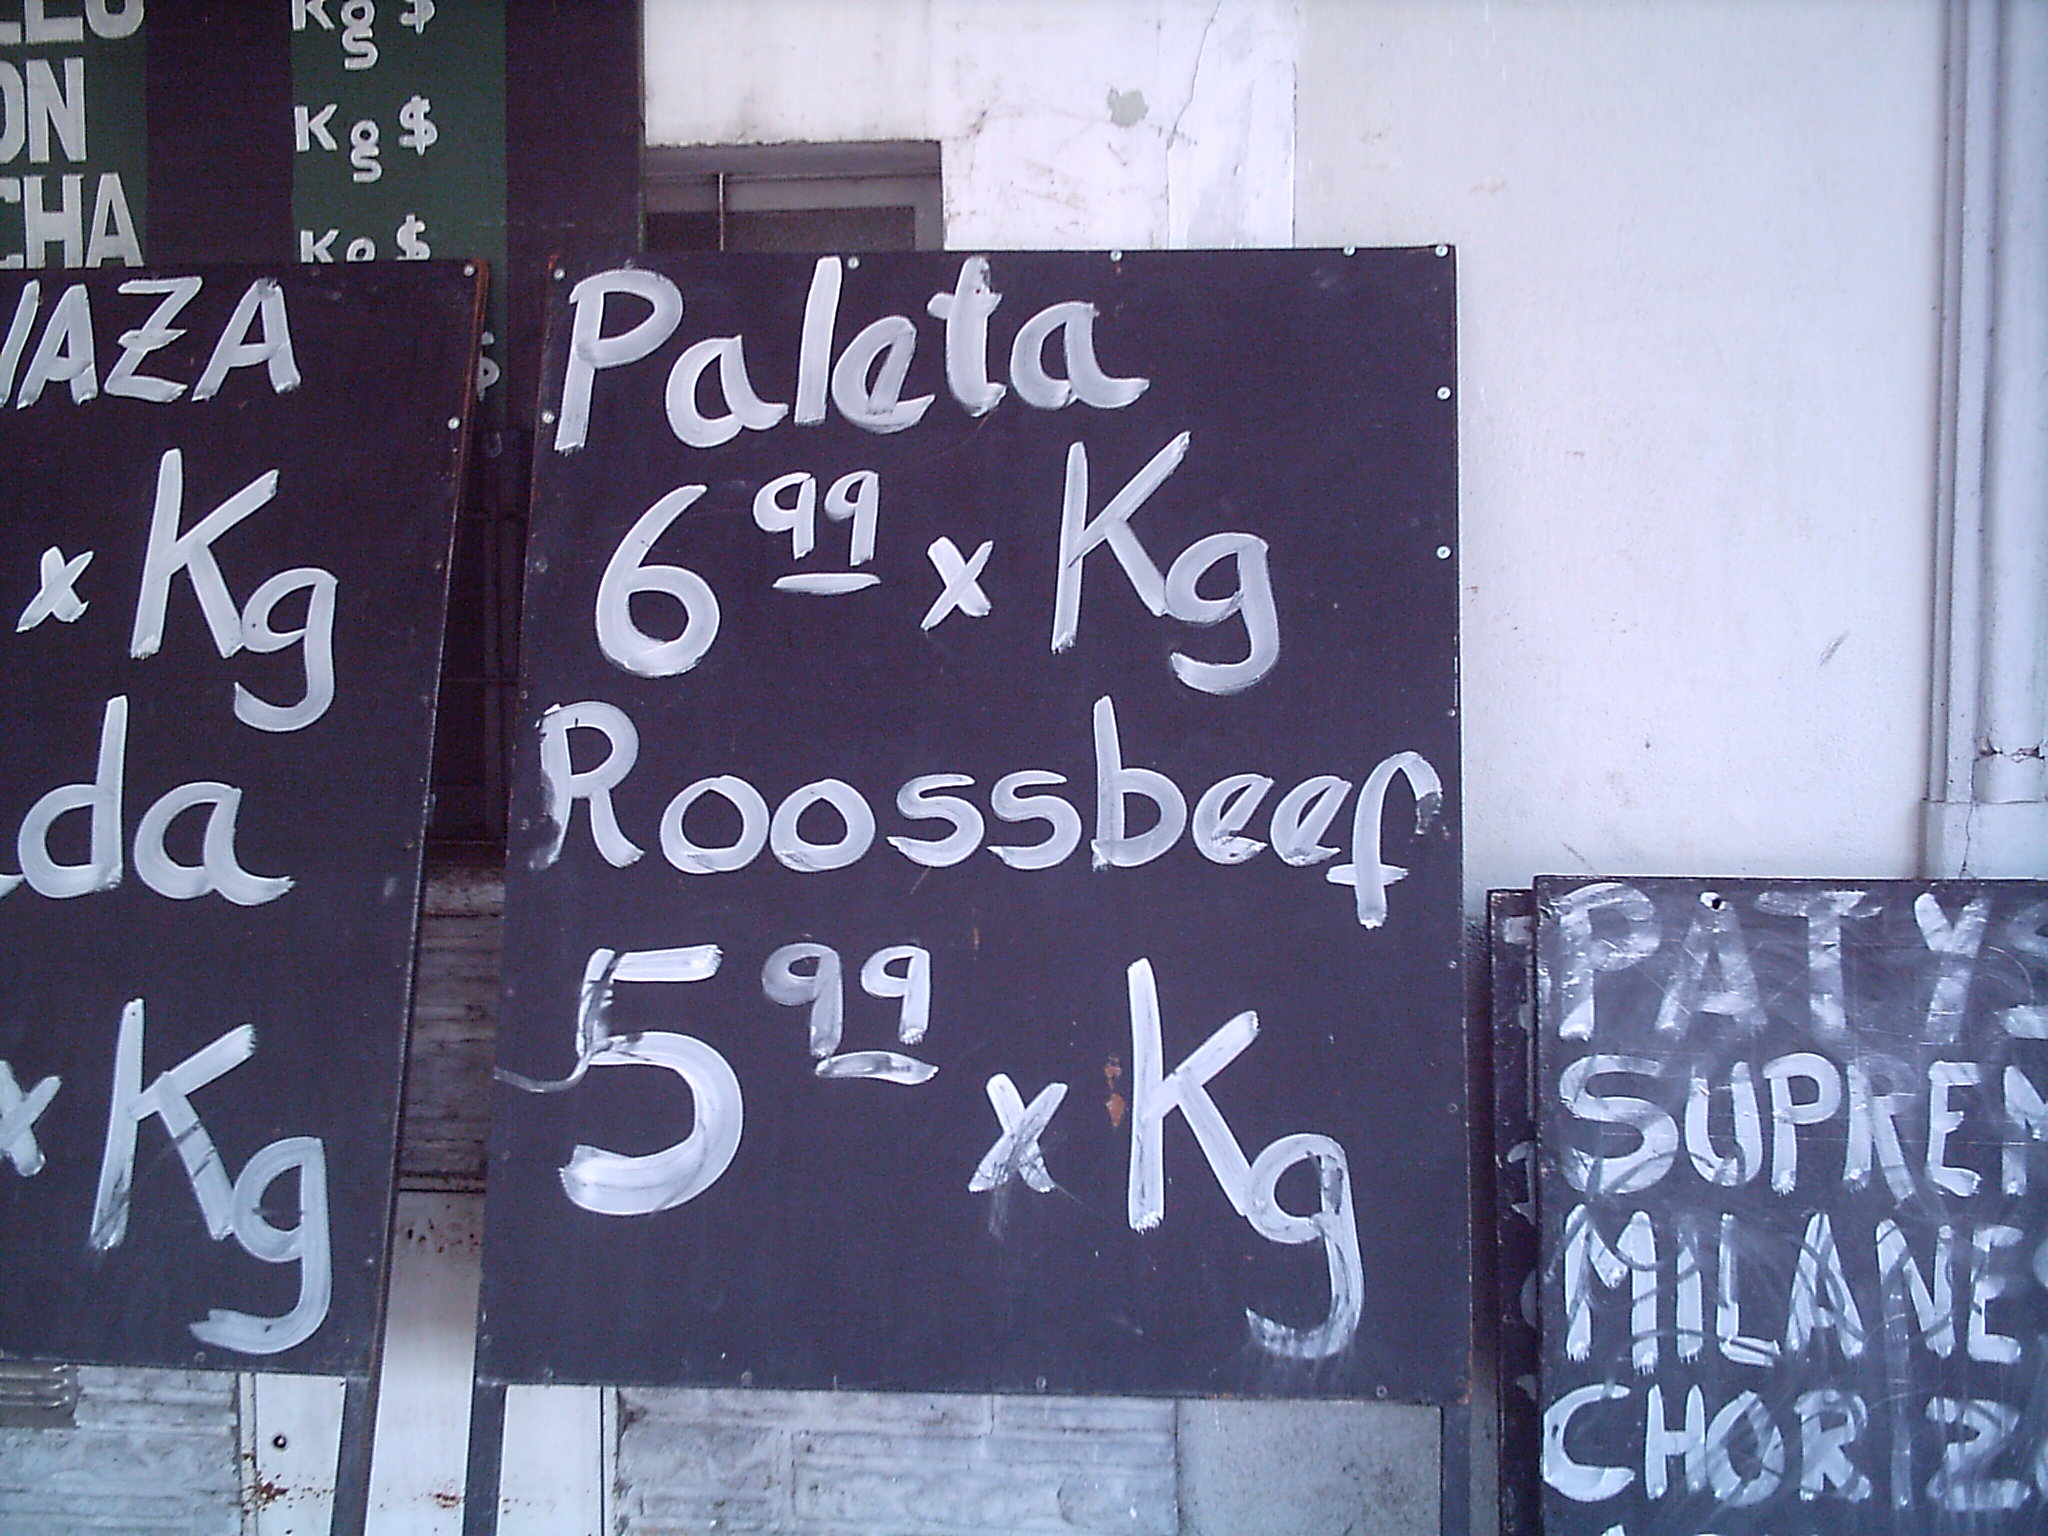 Kg $
Kg $
CHA
Kg $
x Kg
da
x Kg
Paleta
6 99 x Kg
Roossbeef
5 99 x Kg
PATYS
SUPREM
MILANES
CHORIZ